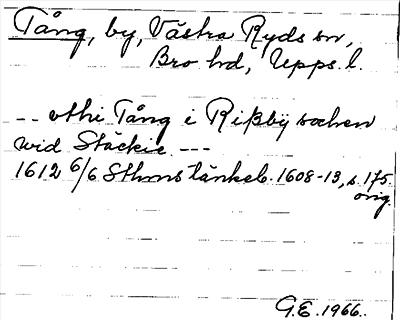 Tång, by, Västra Ryds sn,
Bro hd, Upps. l.
-- vthi Tång i Rißby sochen
wid Stäckie ---
1612 6/6 Sthms tänkeb. 1608-13, s. 175.
orig.
G.E. 1966.